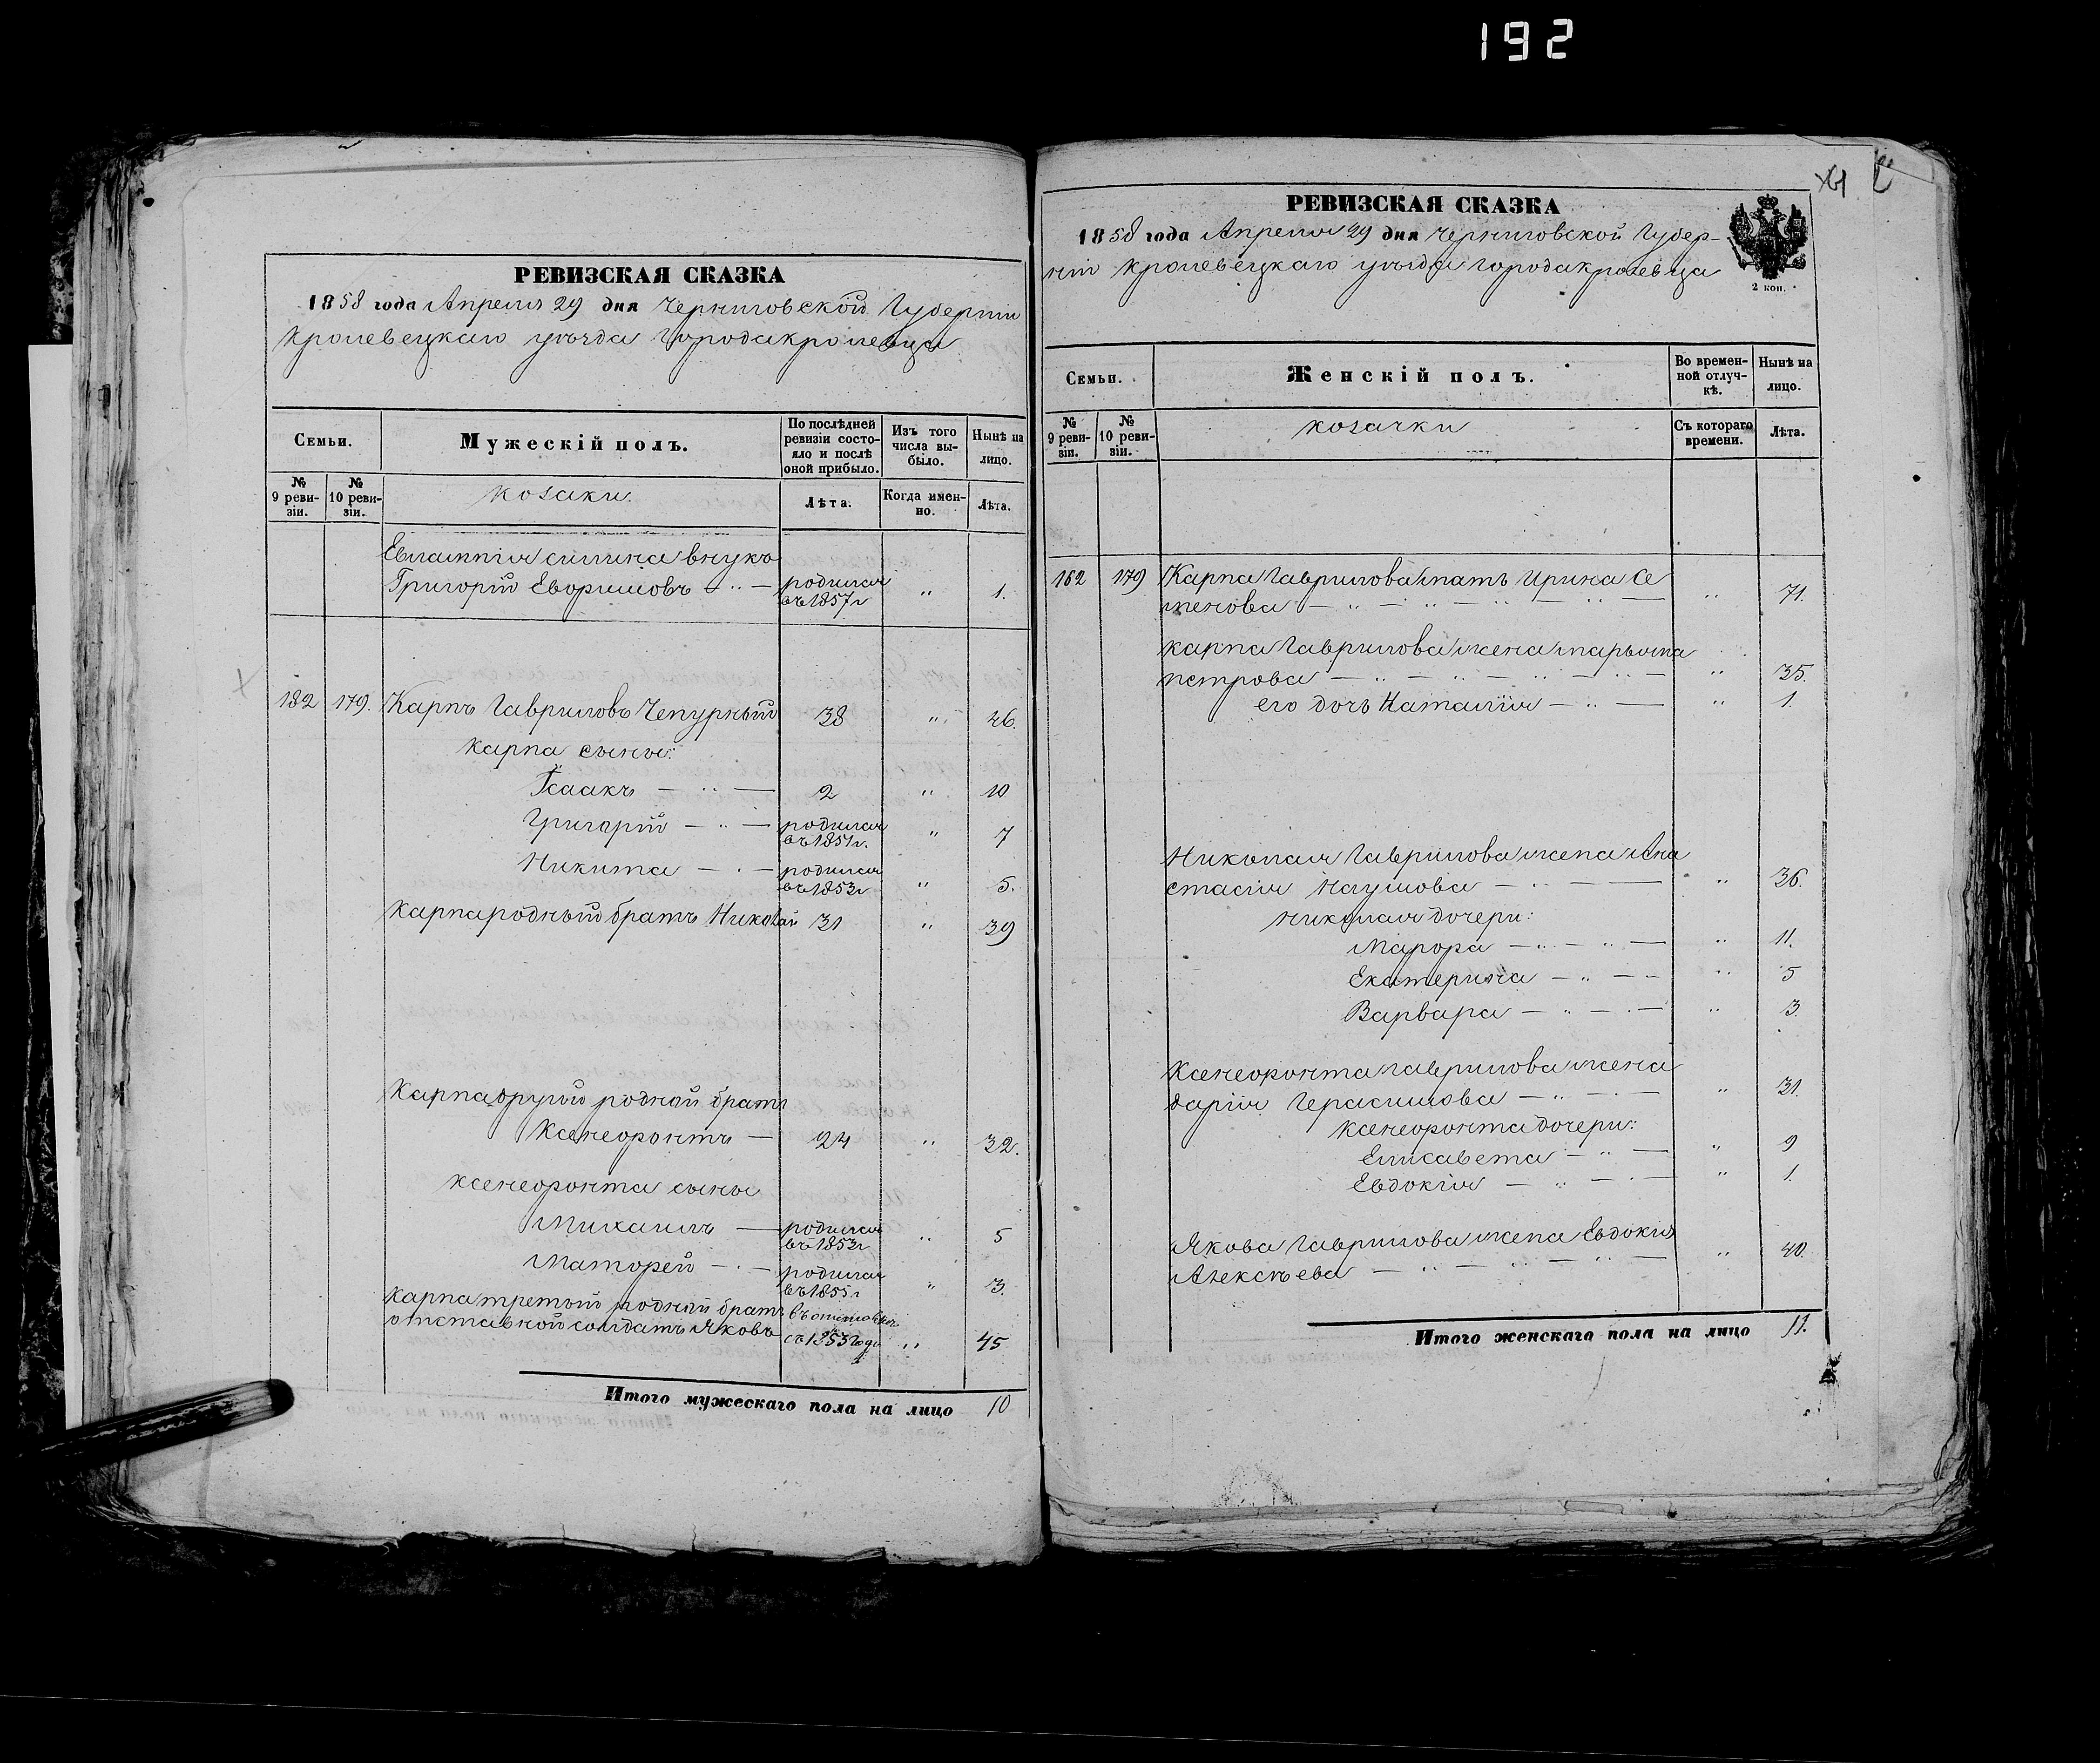 192
РЕВИЗСКАЯ СКАЗКА
1858 года Апреля 29 дня Черниговской Губерніи
Кролевецкаго уѣзда города Кролевца
Семьи.
Мужескій полъ.
По послѣдней ревизіи состояло и послѣ оной прибыло.
Изъ того числа выбыло.
Нынѣ на лицо.
№ 9 ревизіи.
№ 10 ревизіи.
козаки.
Лѣта.
Когда именно.
Лѣта.
Евлампія силина внукъ
Григорій Евфимовъ — „ — родился въ 1857 г „ 1.
182 179. Карпъ Гавриловъ Чепурный 38 „ 46.
Карпа сыны:
Ісаакъ — „ — 2 „ 10
Григорій — „ — родился въ 1851 г. „ 7
Никита — „ — родился въ 1853 г „ 5.
Карпа родный братъ Николай 31 „ 39
Карпа другій родной братъ
Ксенофонтъ — 24 „ 32.
Ксенофонта сыны
Михаилъ — родился въ 1853 г „ 5
Матфей — „ — родился въ 1855 г „ 3.
Карпа третий родный братъ
отставной солдатъ Яковъ съ 1853 года „ 45
Итого мужескаго пола на лицо 10
РЕВИЗСКАЯ СКАЗКА
1858 года Апреля 29 дня Черниговской Губер-
ніи Кролевецкаго уѣзда города Кролевца
2 коп.
Семьи.
Женскій полъ.
Во временной отлучкѣ.
Нынѣ на лицо.
№ 9 ревизіи.
№ 10 ревизіи.
козачки
Съ котораго времени.
Лѣта.
182 179 Карпа Гаврилова мать Ирина Се
менова — „ — „ — „ — „ — „ 71.
Карпа Гаврилова жена Марьяна
петрова — „ — „ — „ — „ — „ 35.
его дочь Наталія — „ — „ 1.
Николая Гаврилова жена Ана
стасія Наумова — „ — „ 36.
николая дочери:
Марфа — „ — „ — „ 11.
Екатерина — „ — „ 5
Варвара — „ — „ — „ 3.
Ксенофонта Гаврилова жена
дарія Герасимова — „ — „ — „ 31.
Ксенофонта дочери:
Елисавета — „ — „ 9
Евдокія — „ — „ — „ 1.
Якова Гаврилова жена Евдокія
Алексѣева — „ — „ — „ — „ 40.
Итого женскаго пола на лицо 11.